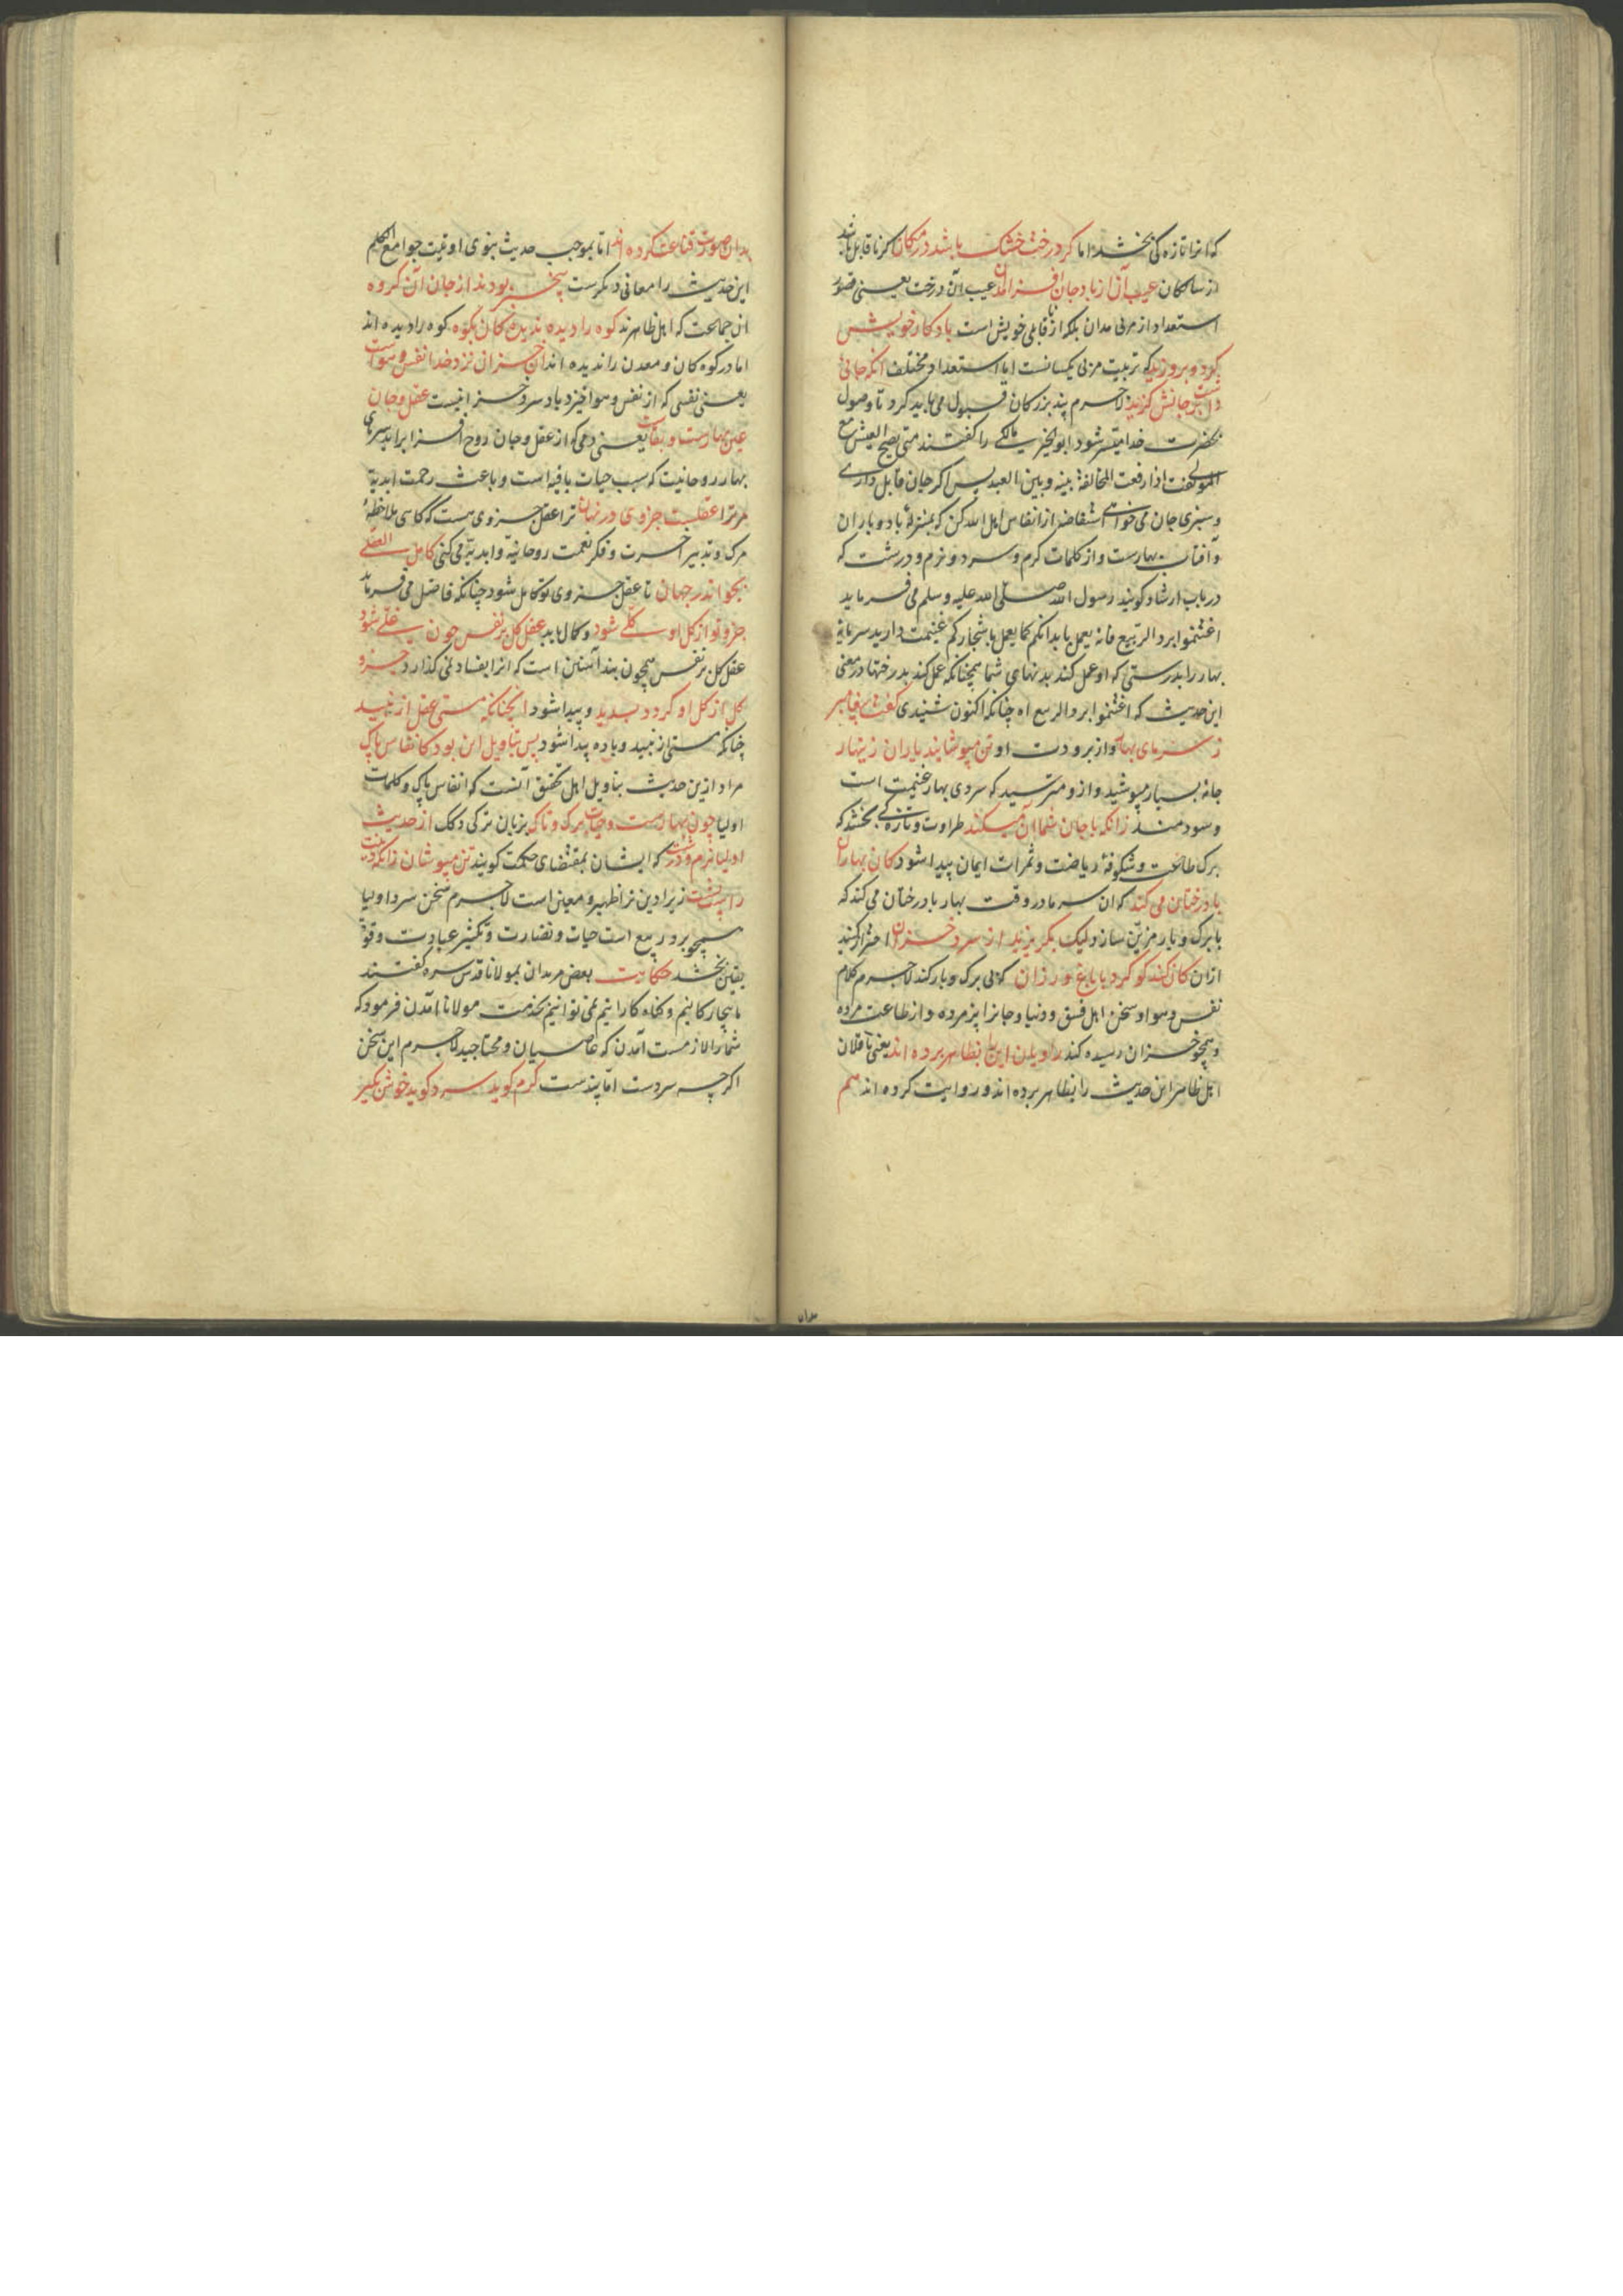 که آنرا تازه کی بخشد اما کر درخت خشک باشد در مکان کر ناقابل باشد
از سالکان عیب آن از باد جان افزا مدان عیب آن درخت یعنی قصور
استعداد از مربی مدان بلکه از ناقابلی خویش است باد کار خویش
کرد و بروزید که تربیت مربی یکسانست اما استعداد مختلف آنکه جانی
داشت بر جانش کزید لاجرم پند بزرکان قبول می باید کرد تا وصول
بحضرت خدا میسر شود ابو الخیر مالکی را کفتند متی یصح العیش مع
المولی کفت اذا رفعت المخالفة بینه و بین العبد پس اکر جان قابل داری
و سبزی جان می خواهی استفاضه از انفاس اهل الله کن که بمنزلهٔ باد و باران
و آفتاب بهارست و از کلمات کرم و سرد و نرم و درشت که
در باب ارشاد کویند رسول الله صلی الله علیه و سلم می فرماید
اغتنموا برد الربیع فانه یعمل بابدانکم کما یعمل باشجارکم غنیمت دارید سرمای
بهار را بدرستی که او عمل کند بدنهای شما همچنانکه عمل کند بدرختها در معنی
این حدیث که اغتنموا برد الربیع اه چنانکه اکنون شنیدی کفت پیغامبر
ز سرمای بهار و از برودت او تن مپوشانید یاران زینهار
جامهٔ بسیار مپوشید و ازو مترسید که سردی بهار غنیمت است
و سودمند زانکه با جان شما آن میکند طراوت و تازه کی بخشد که
برک طاعت و شکوفهٔ ریاضت و ثمرات ایمان پیدا شود کان بهاران
با درختان می کند که آن سرما در وقت بهار با درختان می کند که
با برک و بار مزین سازد لیک بکریزید از سرد خزان احتراز کنید
ازان کان کند کو کرد با باغ و رزان که بی برک و بار کند لاجرم کلام
نفس و هوا و سخن اهل فسق و دنیا و جانرا پژمرده و از طاعت مرده
و همچو خزان رسیده کند راویان این را بظاهر برده اند یعنی ناقلان
اهل ظاهر این حدیث را بظاهر برده اند و روایت کرده اند هم
بدان
بدان صورت قناعت کرده اند اما بموجب حدیث نبوی اوتیت جوامع الکلم
این حدیث را معانی دیکرست بیخبر بودند از جان آن کروه
آن جماعت که اهل ظاهرند کوه را دیده ندیده کان بکوه کوه را دیده اند
اما در کوه کان و معدن را ندیده اند آن خزان نزد خدا نفس و هواست
یعنی نفسی که از نفس و هوا خیزد باد سرد خزانیست عقل و جان
عین بهارست و بقاست یعنی دمی که از عقل و جان روح افزا براید سرمای
بهار روحانیت که سبب حیات باقیه است و باعث رحمت ابدیة
مر ترا عقلیست جزوی در نهان ترا عقل جزوی هست که کاهی ملاحظهٔ
مرک و تدبیر آخرت و فکر نعمت روحانیة و ابدیة می کنی کامل العقلی
بجو اندر جهان تا عقل جزوی تو کامل شود چنانکه فاضل می فرماید
جزو تو از کل او کلی شود و کمال یابد عقل کل بر نفس چون غلی شود
عقل کل بر نفس همچون بند آهنین است که انرا بفساد نمی کذارد جزو
کل از کل او کردد پدید و پیدا شود انچنانکه مستی عقل از نبید
چنانکه مستی از نبید و باده پیدا شود پس بتاویل این بود کانفاس پاک
مراد ازین حدیث بتاویل اهل تحقیق آنست که انفاس پاک و کلمات
اولیا چون بهارست و حیات برک و تاک بزبان ترکی دکک از حدیث
اولیا نرم و درشت که ایشان بمقتضای حکمت کویند تن مپوشان زانکه دینت
راست پشت زیرا دین ترا ظهیر و معین است لاجرم سخن سرد اولیا
همچو برد ربیع است حیات و نضارت و تکثیر عبادت و قوة
یقین بخشد حکایت بعض مریدان بمولانا قدس سره کفتند
ما بیچارکانیم و کناه کارانیم نمی توانیم بخدمت مولانا آمدن فرمود که
شما را لازمست آمدن که عاصیان و محتاجید لاجرم این سخن
اکرچه سردست اما پندست کرم کوید سرد کوید خوش بکیر